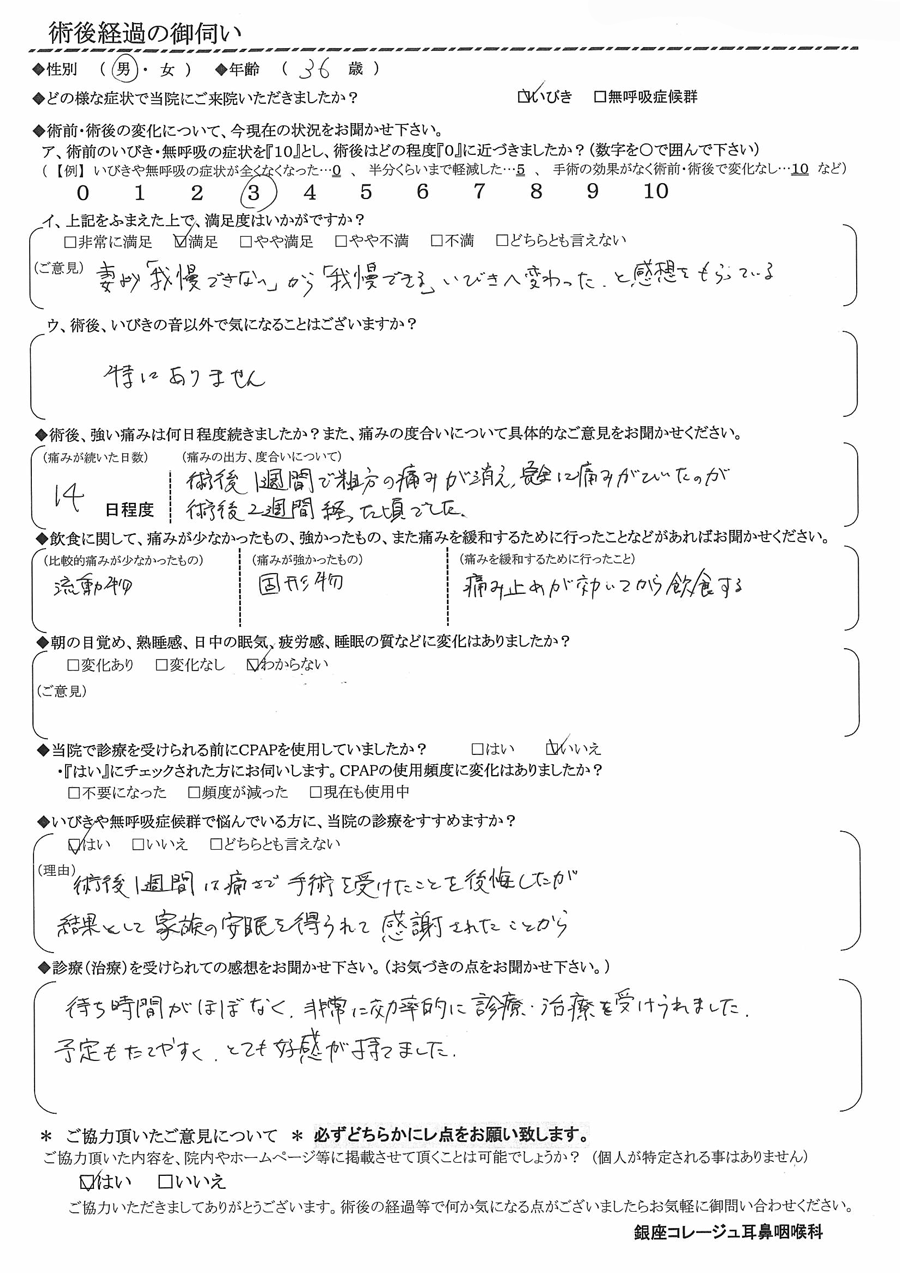 術後経過の御伺い
◆性別 (男・女) ◆年齢 ( 36 歳 )
◆どの様な症状で当院にご来院いただきましたか? ☑いびき □無呼吸症候群
◆術前・術後の変化について、今現在の状況をお聞かせ下さい。
ア、術前のいびき・無呼吸の症状を『10』とし、術後はどの程度『0』に近づきましたか?(数字を○で囲んで下さい)
(【例】いびきや無呼吸の症状が全くなくなった…0 、 半分くらいまで軽減した…5 、 手術の効果がなく術前・術後で変化なし…10 など)
0 1 2 3 4 5 6 7 8 9 10
イ、上記をふまえた上で、満足度はいかがですか?
□非常に満足 ☑満足 □やや満足 □やや不満 □不満 □どちらとも言えない
(ご意見) 妻より「我慢できない」から「我慢できる」いびきへ変わった、と感想をもらっている
ウ、術後、いびきの音以外で気になることはございますか?
特にありません
◆術後、強い痛みは何日程度続きましたか?また、痛みの度合いについて具体的なご意見をお聞かせください。
(痛みが続いた日数) (痛みの出方、度合いについて)
14 日程度 術後1週間で粗方の痛みが消え、完全に痛みがひいたのが
術後2週間経った頃でした。
◆飲食に関して、痛みが少なかったもの、強かったもの、また痛みを緩和するために行ったことなどがあればお聞かせください。
(比較的痛みが少なかったもの) (痛みが強かったもの) (痛みを緩和するために行ったこと)
流動物 固形物 痛み止めが効いてから飲食する
◆朝の目覚め、熟睡感、日中の眠気、疲労感、睡眠の質などに変化はありましたか?
□変化あり □変化なし ☑わからない
(ご意見)
◆当院で診療を受けられる前にCPAPを使用していましたか? □はい ☑いいえ
・『はい』にチェックされた方にお伺いします。CPAPの使用頻度に変化はありましたか?
□不要になった □頻度が減った □現在も使用中
◆いびきや無呼吸症候群で悩んでいる方に、当院の診療をすすめますか?
☑はい □いいえ □どちらとも言えない
(理由) 術後1週間は痛さで手術を受けたことを後悔したが
結果として家族の安眠を得られて感謝されたことから
◆診療(治療)を受けられての感想をお聞かせ下さい。(お気づきの点をお聞かせ下さい。)
待ち時間がほぼなく、非常に効率的に診療・治療を受けられました。
予定もたてやすく、とても好感が持てました。
* ご協力頂いたご意見について * 必ずどちらかにレ点をお願い致します。
ご協力頂いた内容を、院内やホームページ等に掲載させて頂くことは可能でしょうか? (個人が特定される事はありません)
☑はい □いいえ
ご協力いただきましてありがとうございます。術後の経過等で何か気になる点がございましたらお気軽に御問い合わせください。
銀座コレージュ耳鼻咽喉科